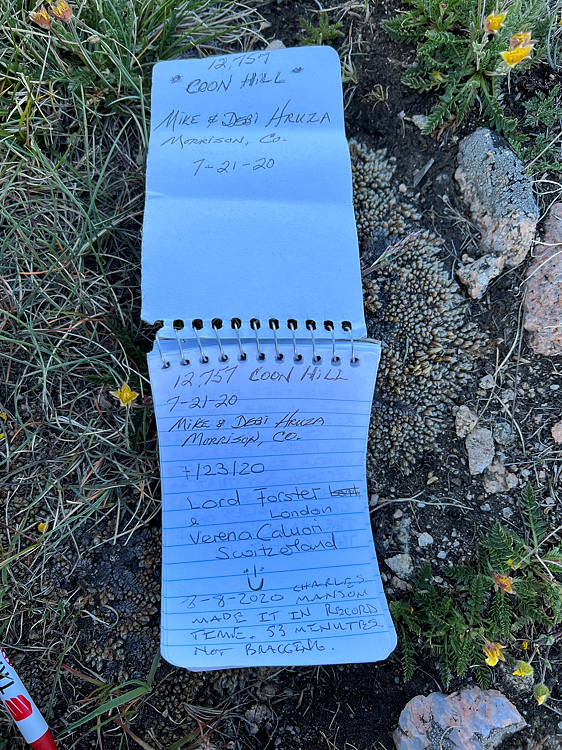 12,757
COON HILL
MIKE & DEBI HRUZA
MORRISON, CO.
7-21-20
12,757 COON HILL
7-21-20
MIKE & DEBI HRUZA
MORRISON, CO.
7/23/20
Lord Forster
& London
Verena Caluori
Switzerland
8-8-2020 CHARLES
MANSON
MADE IT IN RECORD
TIME. 53 MINUTES
NOT BRAGGING.